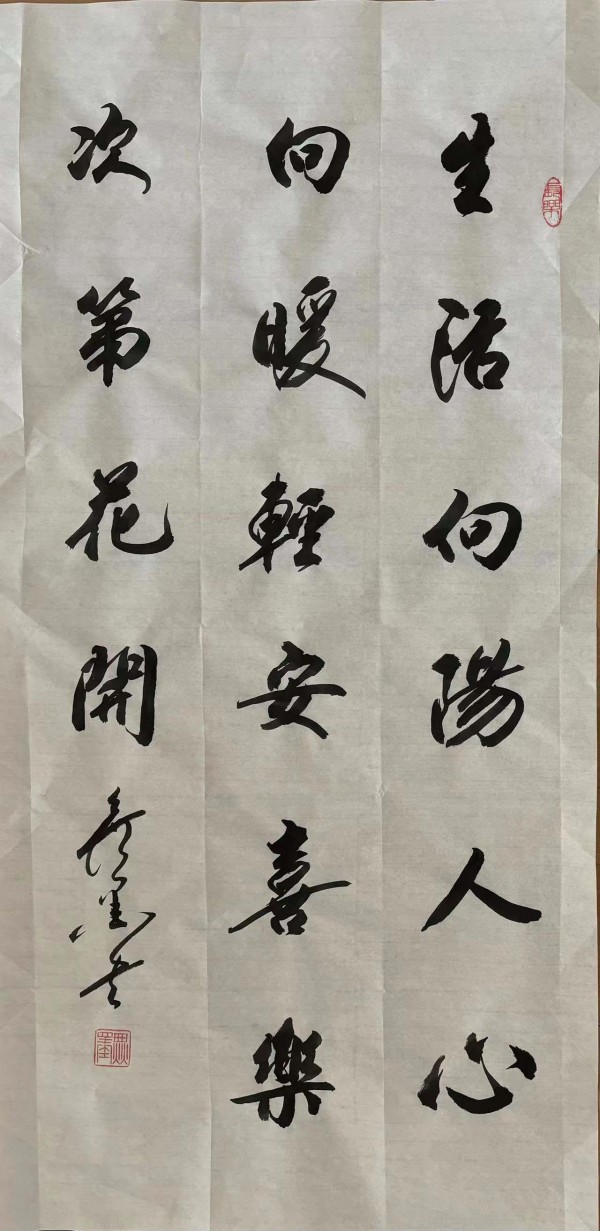 生活向陽人心
向暖輕安喜樂
次第花開
書